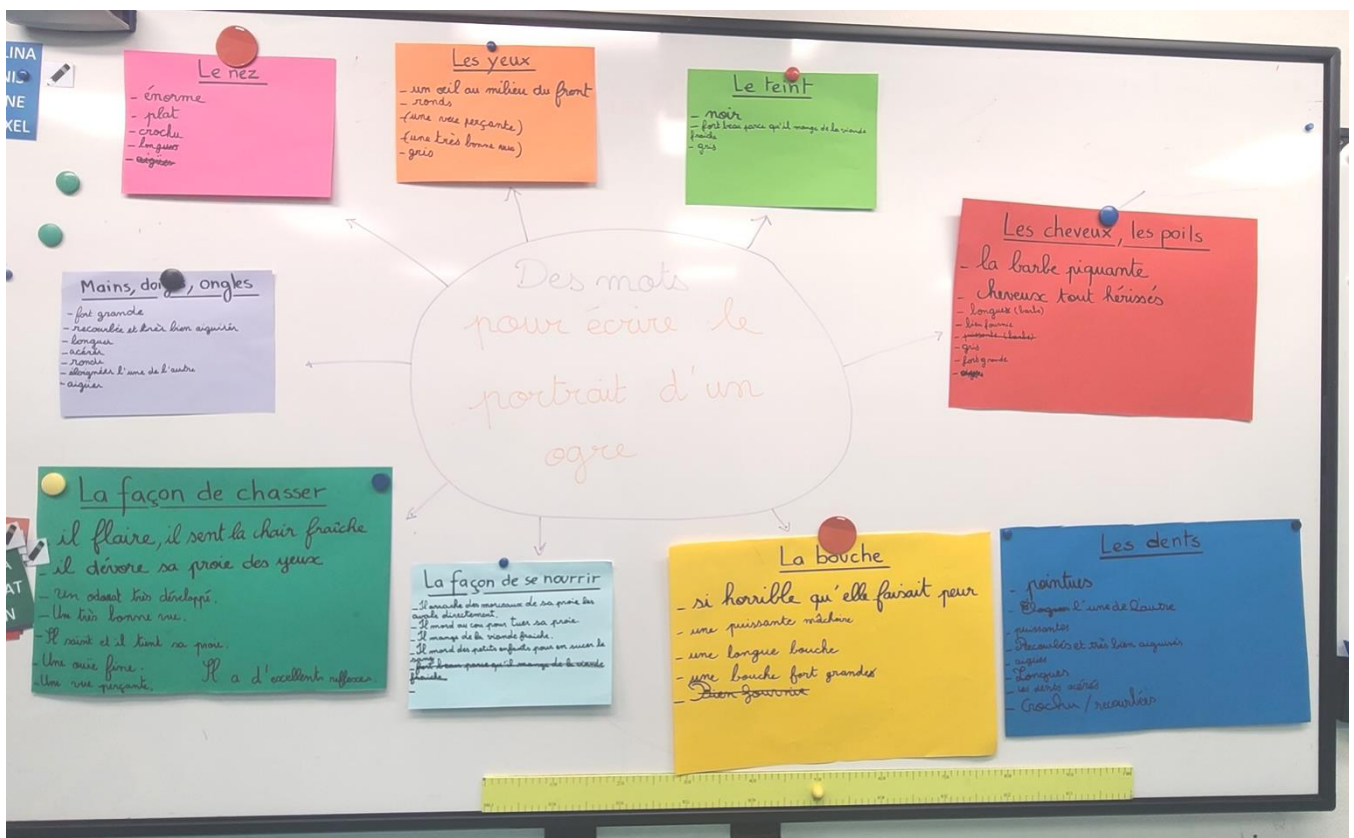 LINA
NE
XEL
Le nez
- énorme
- plat
- crochu
- longues
Les yeux
- un œil au milieu du front
- ronds
- (une vue perçante)
- (une très bonne vue)
- gris
Le teint
- noir
- fort beau parce qu'il mange de la viande
fraîche
- gris
Les cheveux, les poils
- la barbe piquante
- cheveux tout hérissés
- longues (barbe)
- bien fournie
- puissante (barbe)
- gris
- fort grande
Mains, doigts, ongles
- fort grande
- recourbés et très bien aiguisés
- longues
- acérés
- ronds
- éloignées l'une de l'autre
- aigues
Des mots
pour écrire le
portrait d'un
ogre
La façon de chasser
- il flaire, il sent la chair fraîche
- il dévore sa proie des yeux
- Un odorat très développé.
- Une très bonne vue.
- Il saisit et il tient sa proie.
- Une ouïe fine.
- Une vue perçante.
Il a d'excellent reflexes.
La façon de se nourrir
- Il arrache des morceaux de sa proie les
avale directement.
- Il mord au cou pour tuer sa proie.
- Il mange de la viande fraiche.
- Il mord des petits enfants pour en sucer le
sang
- fort beau parce qu'il mange de la viande
fraiche
-
La bouche
- si horrible qu'elle faisait peur
- une puissante mâchoire
- une longue bouche
- une bouche fort grande
- Bien fournie
Les dents
- pointues
- l'une de l'autre
- puissantes
- Recourbés et très bien aiguisés
- aigues
- Longues
- les dents acérés
- Crochu / recourbées